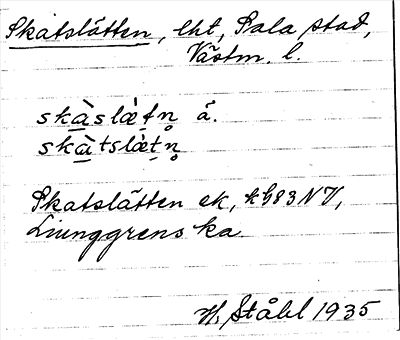 Skatslätten, lht, Sala stad,
Västm. l.
skàslæ̀tn̥ ä.
skàtslæ̀tn̥
Skatslätten ek, 983 NV,
Ljunggrens ka
H. Ståhl 1935